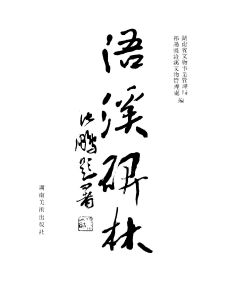 湖南省文物事业管理局
祁阳县浯溪文物管理处
编
浯溪碑林
沈鹏题署
湖南美术出版社